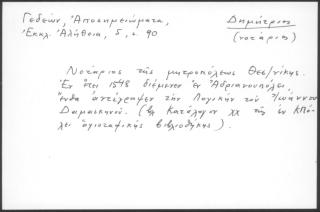 Γεδεών, Ἀποσημειώματα,
Ἐκκλ. Ἀλήθεια, 5, σ. 90
Δημήτριος
(νοτάριος)
Νοτάριος τῆς μητροπόλεως Θεσ/νίκης.
Ἐν ἔτει 1548 διέμενεν ἐν Ἀδριανουπόλει,
ἔνθα ἀντέγραψεν τὴν Λογικὴν τοῦ Ἰωάννου
Δαμασκηνοῦ. (βλ. Κατάλογον χχ τῆς ἐν ΚΠό-
λει ἁγιοταφικῆς βιβλιοθήκης).